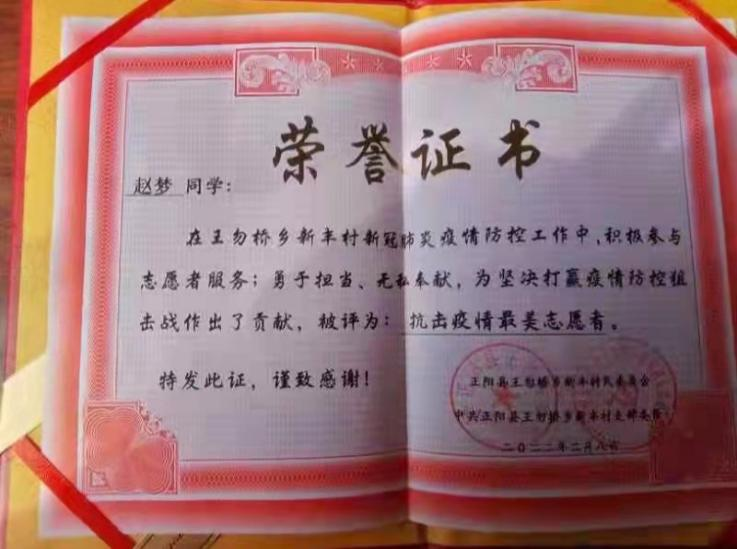 荣誉证书
赵梦 同学:
在王勿桥乡新丰村新冠肺炎疫情防控工作中,积极参与
志愿者服务;勇于担当、无私奉献,为坚决打赢疫情防控狙
击战作出了贡献,被评为:抗击疫情最美志愿者。
特发此证,谨致感谢!
正阳县王勿桥乡新丰村民委员会
中共正阳县王勿桥乡新丰村支部委员
二〇二二年二月八